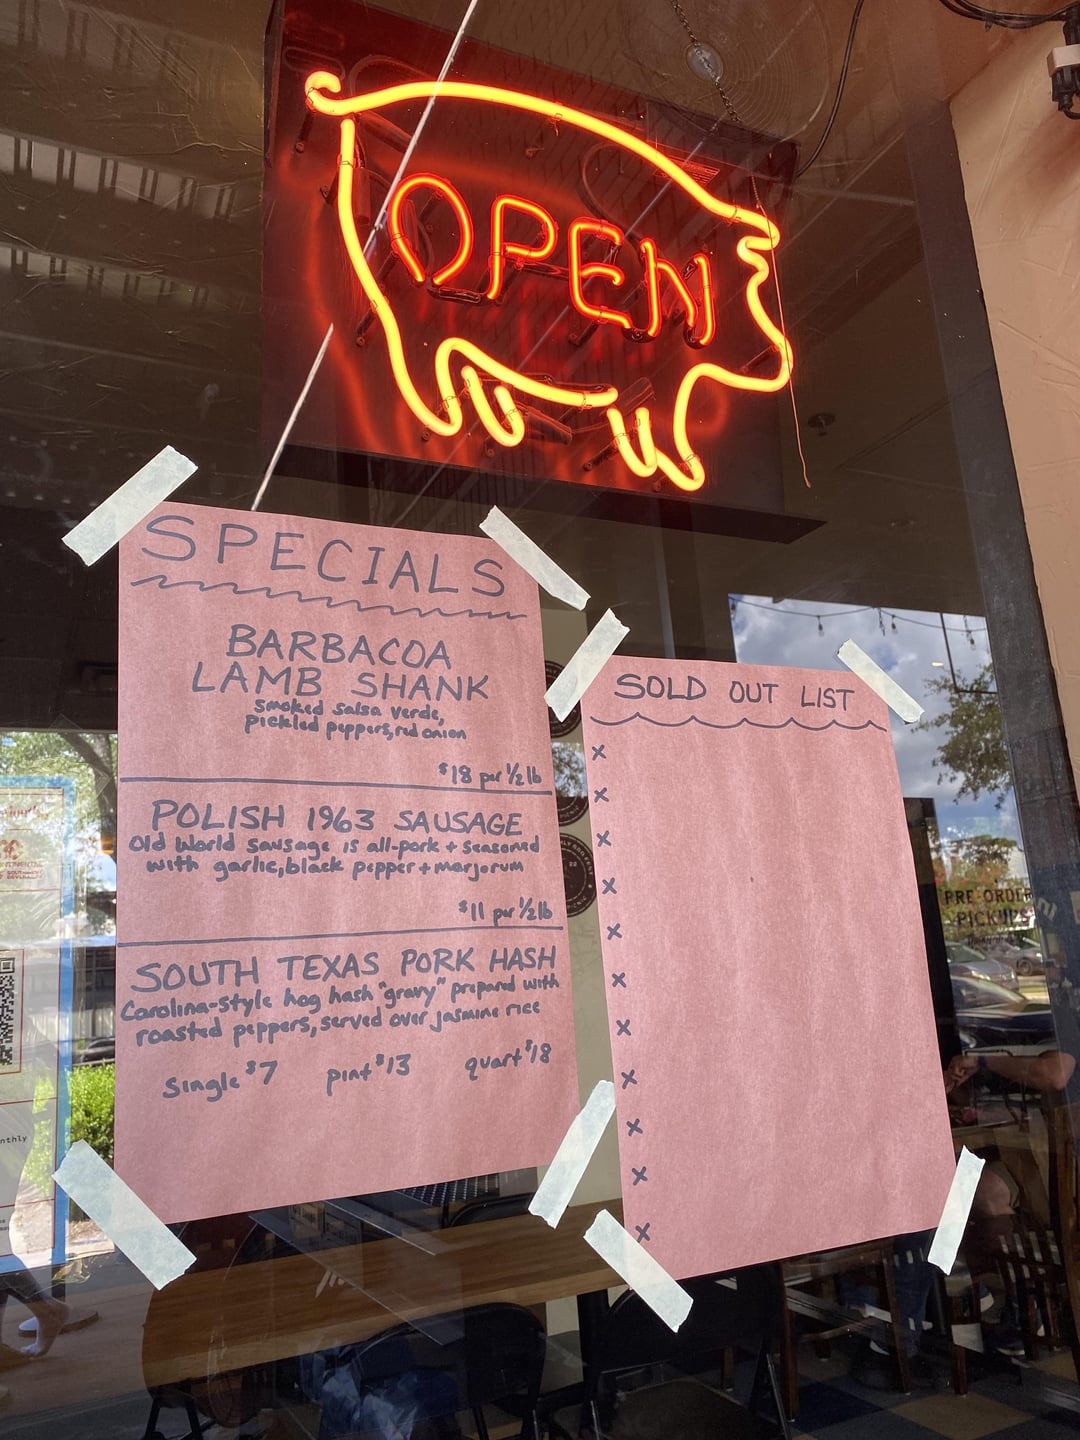 OPEN
SPECIALS
BARBACOA
LAMB SHANK
smoked salsa verde,
pickled peppers, red onion
$18 per ½ lb
POLISH 1963 SAUSAGE
Old World sausage is all-pork + seasoned
with garlic, black pepper + marjorum
$11 per ½ lb
SOUTH TEXAS PORK HASH
Carolina-style hog hash "gravy" prepared with
roasted peppers, served over jasmine rice
single $7 pint $13 quart $18
SOLD OUT LIST
x
x
x
x
x
x
x
x
x
x
x
PRE-ORDER
PICKUPS